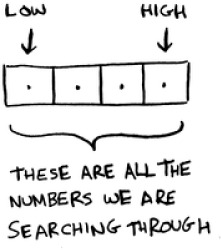 LOW HIGH
THESE ARE ALL THE
NUMBERS WE ARE
SEARCHING THROUGH